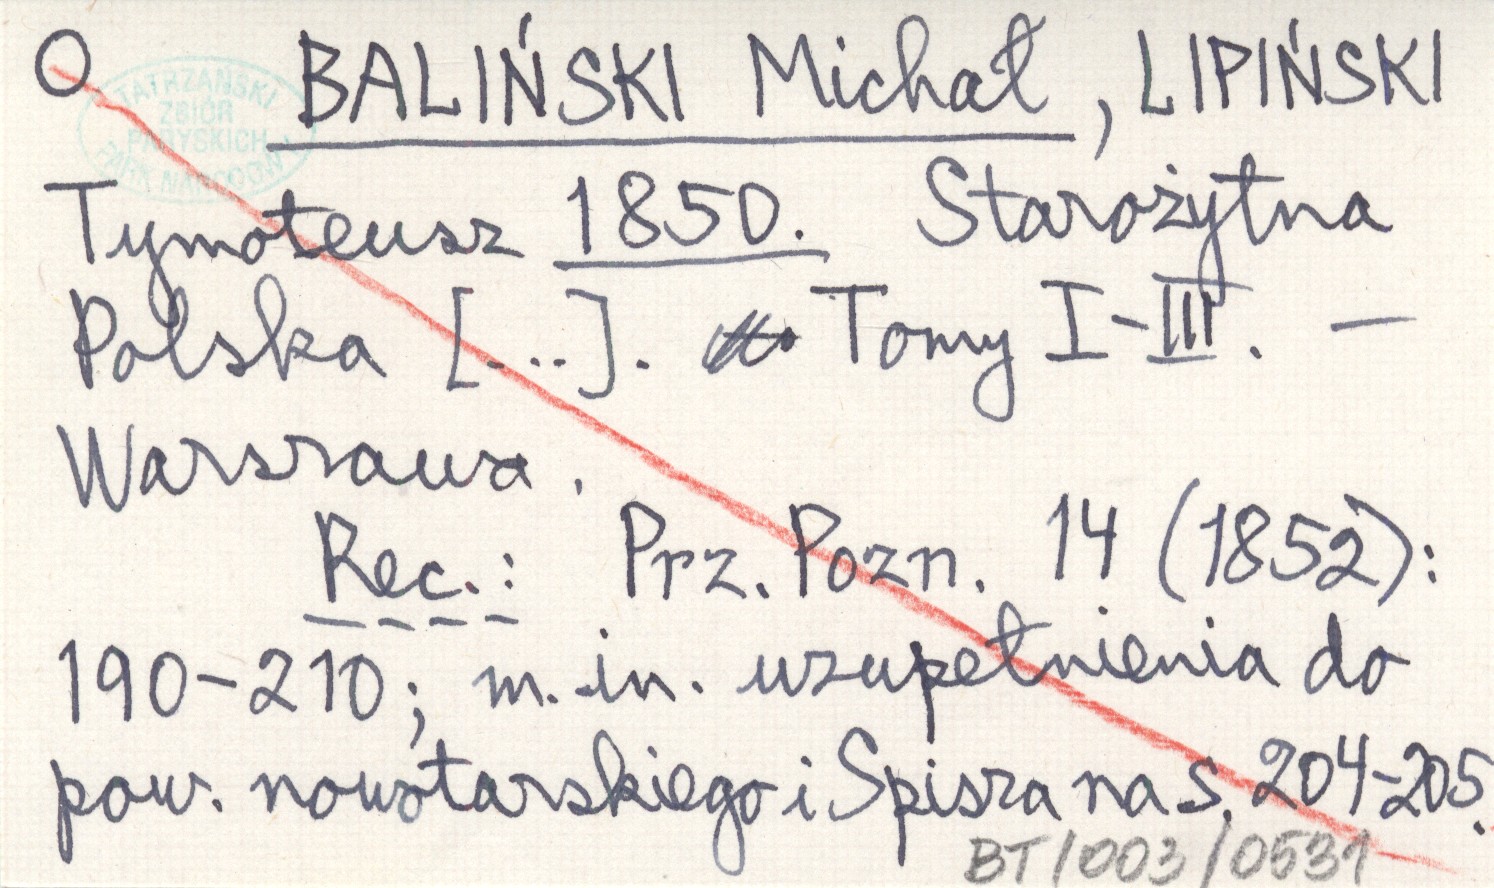 O BALIŃSKI Michał, LIPIŃSKI
TATRZAŃSKI
ZBIÓR
PARYSKICH
PARK NARODOWY
Tymoteusz 1850. Starożytna
Polska [...]. Tomy I-III. —
Warszawa.
Rec.: Prz. Pozn. 14 (1852):
190-210; m.in. uzupełnienia do
pow. nowotarskiego i Spisza na s. 204-205.
BT/003/0531